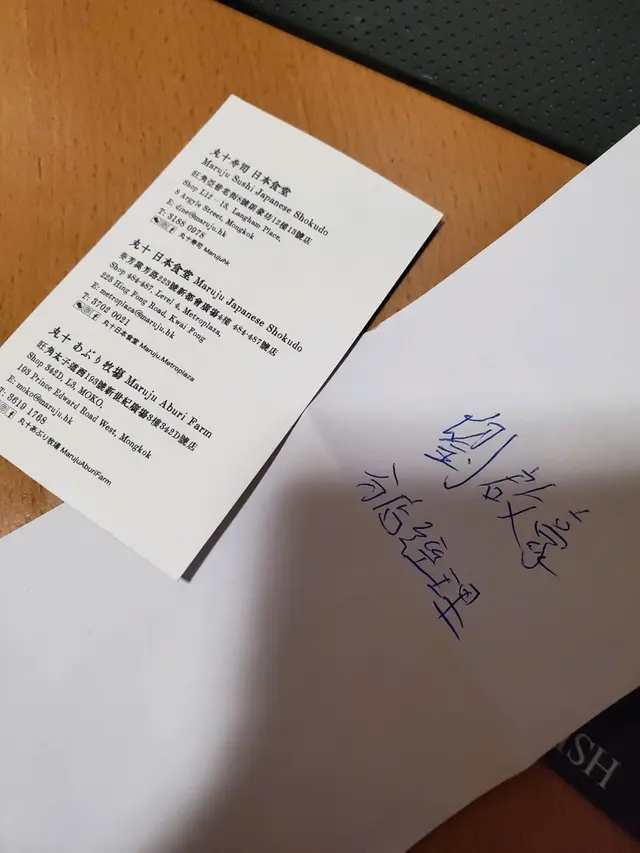 丸十寿司 日本食堂
Maruju Sushi Japanese Shokudo
旺角亞皆老街8號朗豪坊12樓13號店
Shop L12 - 13, Langham Place,
8 Argyle Street, Mongkok
E: dine@maruju.hk
T: 3188 0978
丸十寿司 Marujuhk
丸十 日本食堂 Maruju Japanese Shokudo
葵芳興芳路223號新都會廣場4樓 484-487號店
Shop 484-487, Level 4, Metroplaza,
223 Hing Fong Road, Kwai Fong
E: metroplaza@maruju.hk
T: 3702 0021
丸十日本食堂 Maruju.Metroplaza
丸十 あぶり牧場 Maruju Aburi Farm
旺角太子道西193號新世紀廣場3樓342D號店
Shop 342D, L3, MOKO,
193 Prince Edward Road West, Mongkok
E: moko@maruju.hk
T: 3619 1768
丸十あぶり牧場 MarujuAburiFarm
劉啟
分店經理
ISH